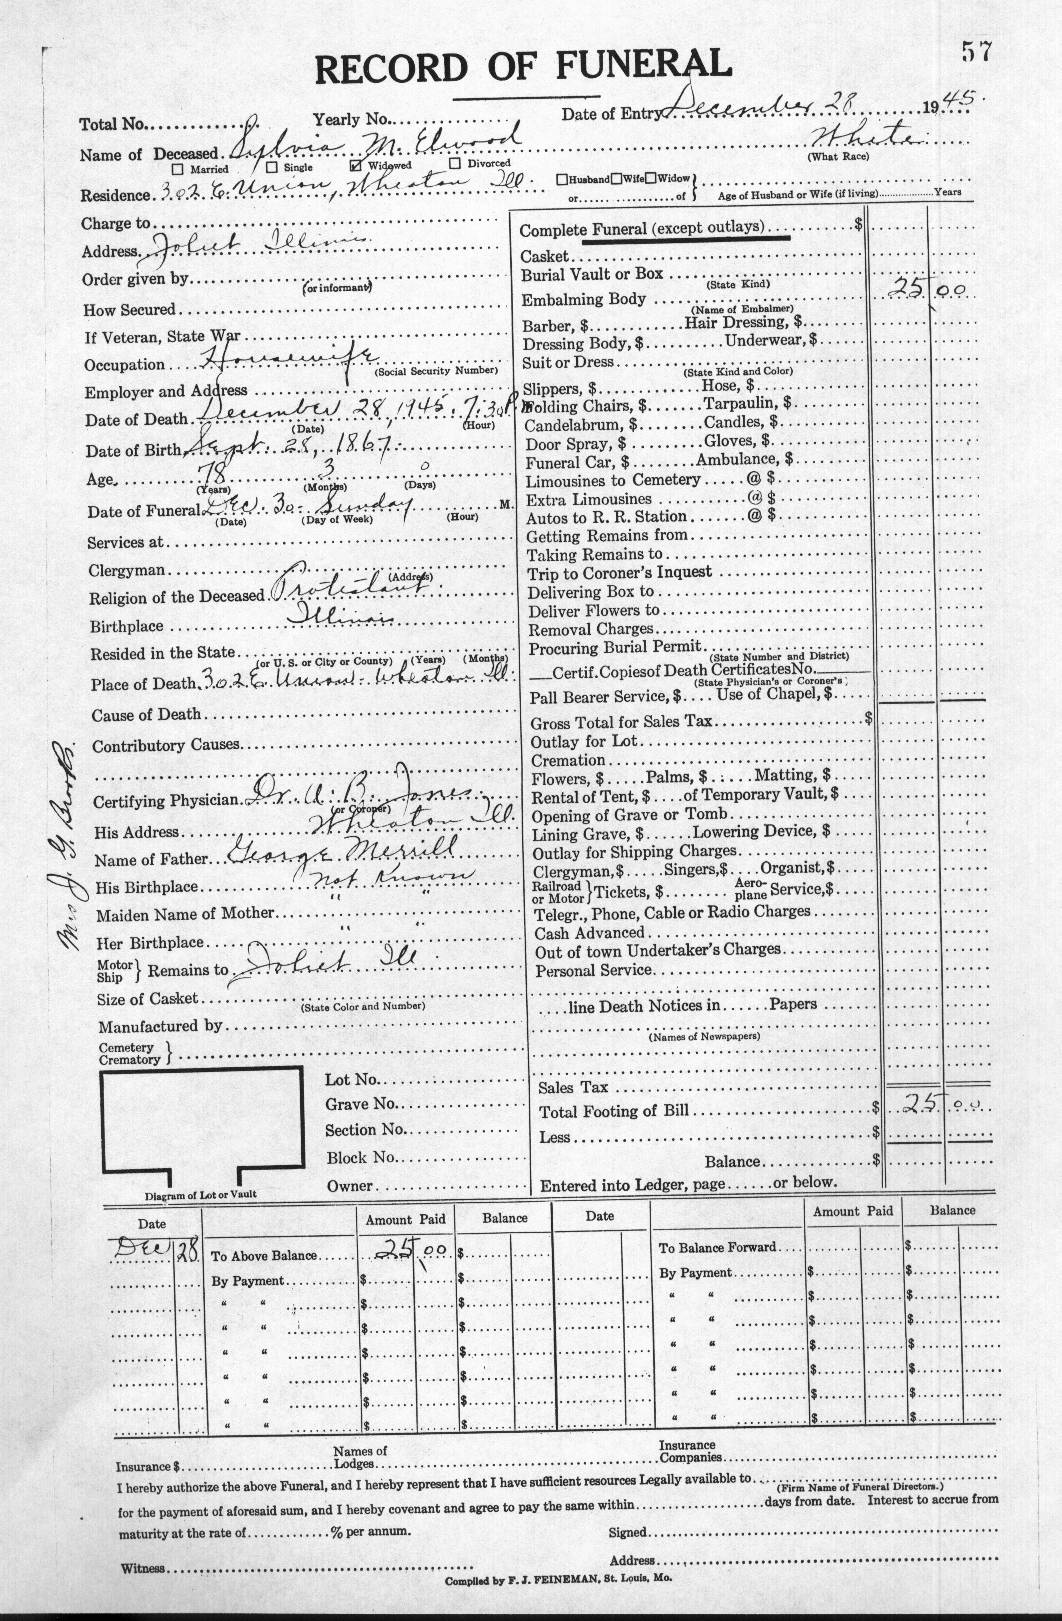 57
RECORD OF FUNERAL
Total No. Yearly No. Date of Entry December 28 1945.
Name of Deceased Sylvia M. Elwood White
(What Race)
☐ Married ☐ Single ☑ Widowed ☐ Divorced
Residence 302 E. Union, Wheaton Ill. ☐Husband ☐Wife ☐Widow
or of Age of Husband or Wife (if living) Years
Charge to
Address Joliet Illinois
Order given by
(or informant)
How Secured
If Veteran, State War
Occupation Housewife
(Social Security Number)
Employer and Address
Date of Death December 28, 1945. 7:30 P. M
(Date) (Hour)
Date of Birth Sept. 28, 1867.
Age 78 3 0
(Years) (Months) (Days)
Date of Funeral Dec. 30 - Sunday M.
(Date) (Day of Week) (Hour)
Services at
Clergyman
(Address)
Religion of the Deceased Protestant
Birthplace Illinois
Resided in the State
(or U. S. or City or County) (Years) (Months)
Place of Death 302 E. Union - Wheaton Ill.
Cause of Death
Contributory Causes
Certifying Physician Dr. A. B. Jones
(or Coroner)
His Address Wheaton Ill.
Name of Father George Merrill
His Birthplace Not Known
Maiden Name of Mother " "
Her Birthplace " "
Motor
Ship } Remains to Joliet Ill.
Size of Casket
(State Color and Number)
Manufactured by
Cemetery
Crematory }
Mrs J. G. Brooks.
Lot No.
Grave No.
Section No.
Block No.
Owner
Diagram of Lot or Vault
Complete Funeral (except outlays) $
Casket
Burial Vault or Box
(State Kind)
Embalming Body 25 00
(Name of Embalmer)
Barber, $ Hair Dressing, $
Dressing Body, $ Underwear, $
Suit or Dress
(State Kind and Color)
Slippers, $ Hose, $
Folding Chairs, $ Tarpaulin, $
Candelabrum, $ Candles, $
Door Spray, $ Gloves, $
Funeral Car, $ Ambulance, $
Limousines to Cemetery @ $
Extra Limousines @ $
Autos to R. R. Station @ $
Getting Remains from
Taking Remains to
Trip to Coroner's Inquest
Delivering Box to
Deliver Flowers to
Removal Charges
Procuring Burial Permit
(State Number and District)
Certif. Copies of Death Certificates No.
(State Physician's or Coroner's)
Pall Bearer Service, $ Use of Chapel, $
Gross Total for Sales Tax $
Outlay for Lot
Cremation
Flowers, $ Palms, $ Matting, $
Rental of Tent, $ of Temporary Vault, $
Opening of Grave or Tomb
Lining Grave, $ Lowering Device, $
Outlay for Shipping Charges
Clergyman, $ Singers, $ Organist, $
Railroad
or Motor } Tickets, $ Aero-
plane Service, $
Telegr., Phone, Cable or Radio Charges
Cash Advanced
Out of town Undertaker's Charges
Personal Service
line Death Notices in Papers
(Names of Newspapers)
Sales Tax
Total Footing of Bill $ 25 00
Less $
Balance $
Entered into Ledger, page or below.
Date Amount Paid Balance Date Amount Paid Balance
Dec 28 To Above Balance 25 00 $ To Balance Forward $
By Payment $ $ By Payment $ $
" " $ $ " " $ $
" " $ $ " " $ $
" " $ $ " " $ $
" " $ $ " " $ $
" " $ $ " " $ $
" " $ $ " " $ $
Insurance $ Names of
Lodges Insurance
Companies
I hereby authorize the above Funeral, and I hereby represent that I have sufficient resources Legally available to
(Firm Name of Funeral Directors.)
for the payment of aforesaid sum, and I hereby covenant and agree to pay the same within days from date. Interest to accrue from
maturity at the rate of % per annum. Signed
Witness Address
Compiled by F. J. FEINEMAN, St. Louis, Mo.